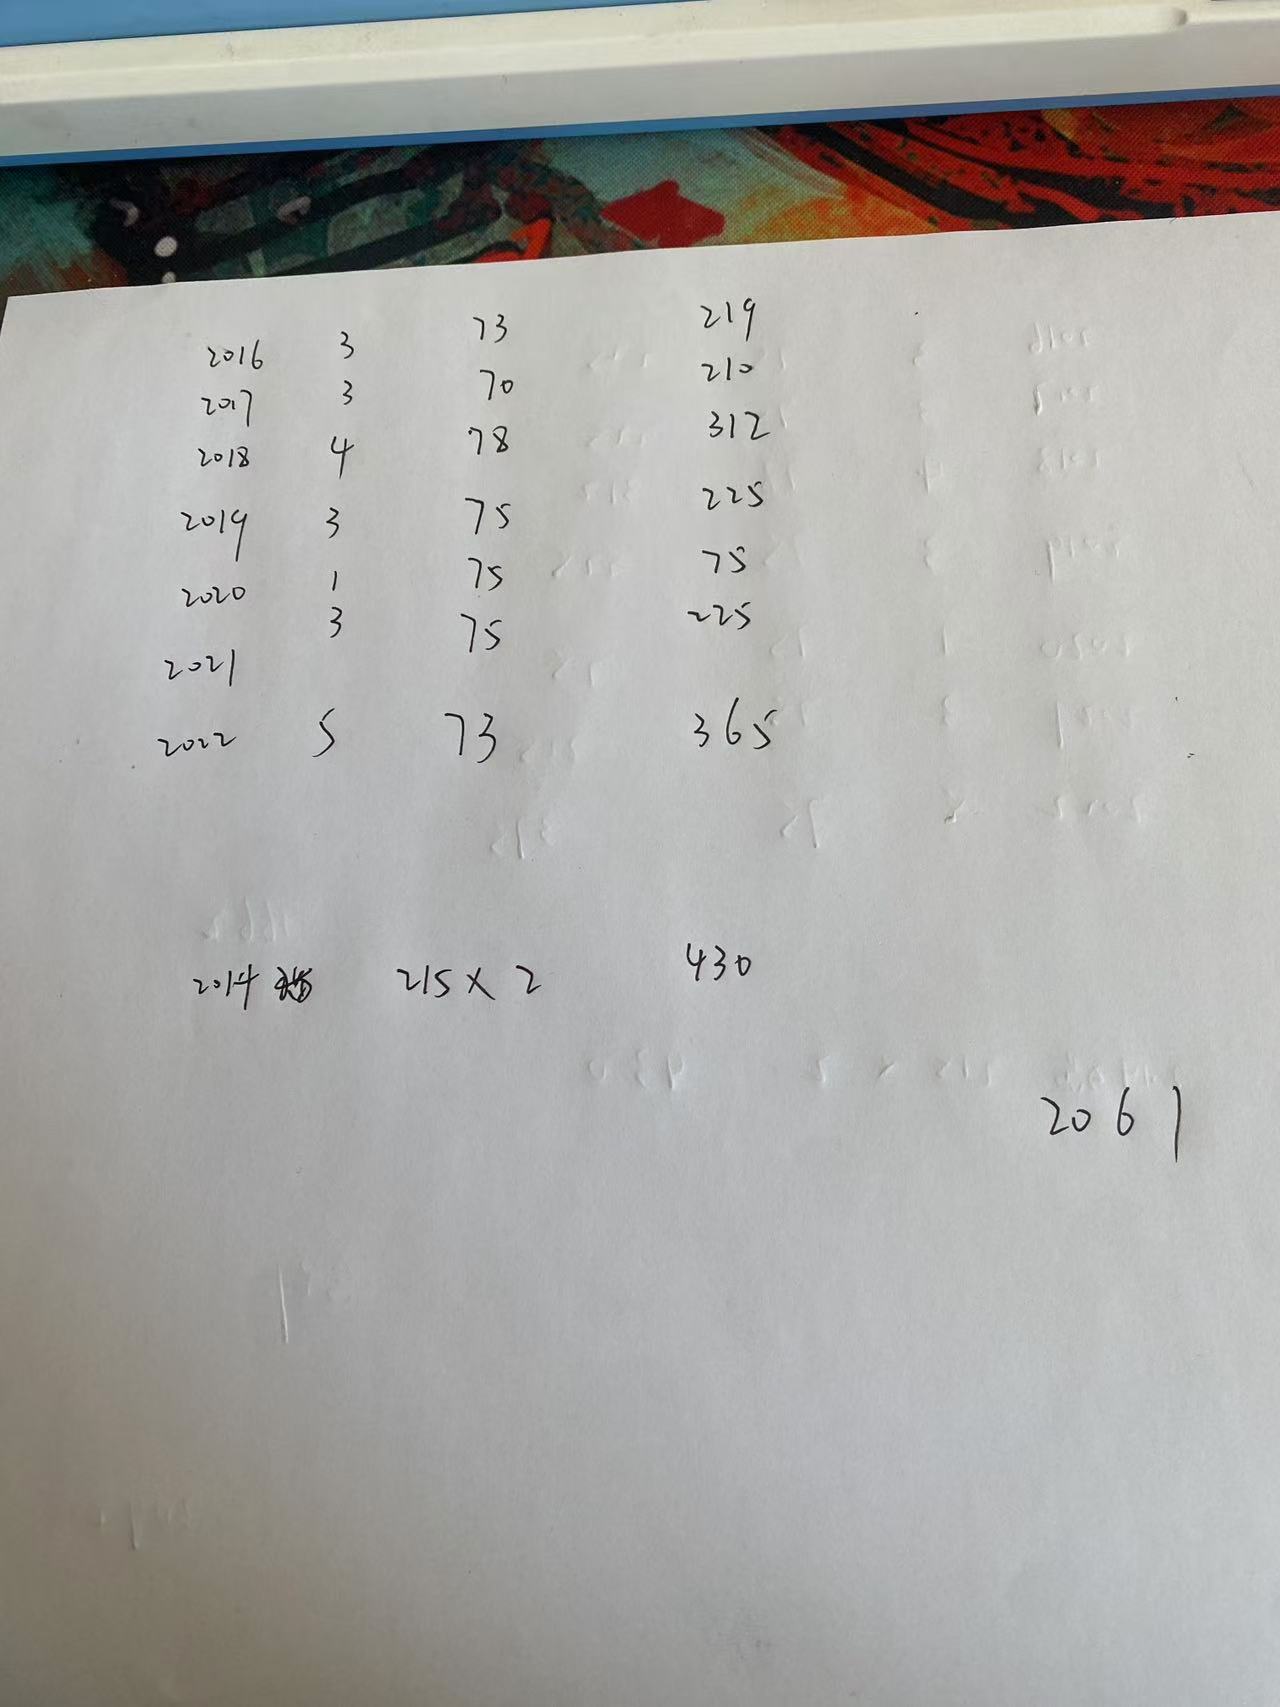 2016 3 73 219
2017 3 70 210
2018 4 78 312
2019 3 75 225
2020 1 75 75
2021 3 75 225
2022 5 73 365
2014 215 x 2 430
2061